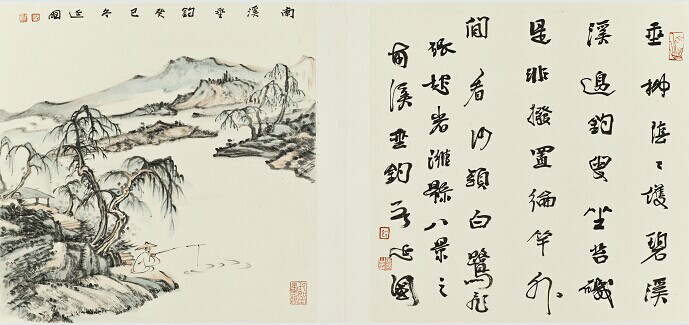 垂柳陰〻護碧溪
溪邊釣叟坐苔磯
是非撥置綸竿外
閒看沙頭白鷺飛
張起岩濰縣八景之
南溪垂釣 延國
南溪垂釣癸巳冬延國